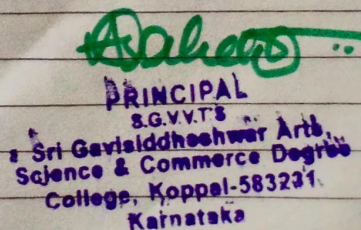 PRINCIPAL
S.G.V.V.T'S
Sri Gavisiddheshwar Arts,
Science & Commerce Degree
College, Koppal-583231.
Karnataka